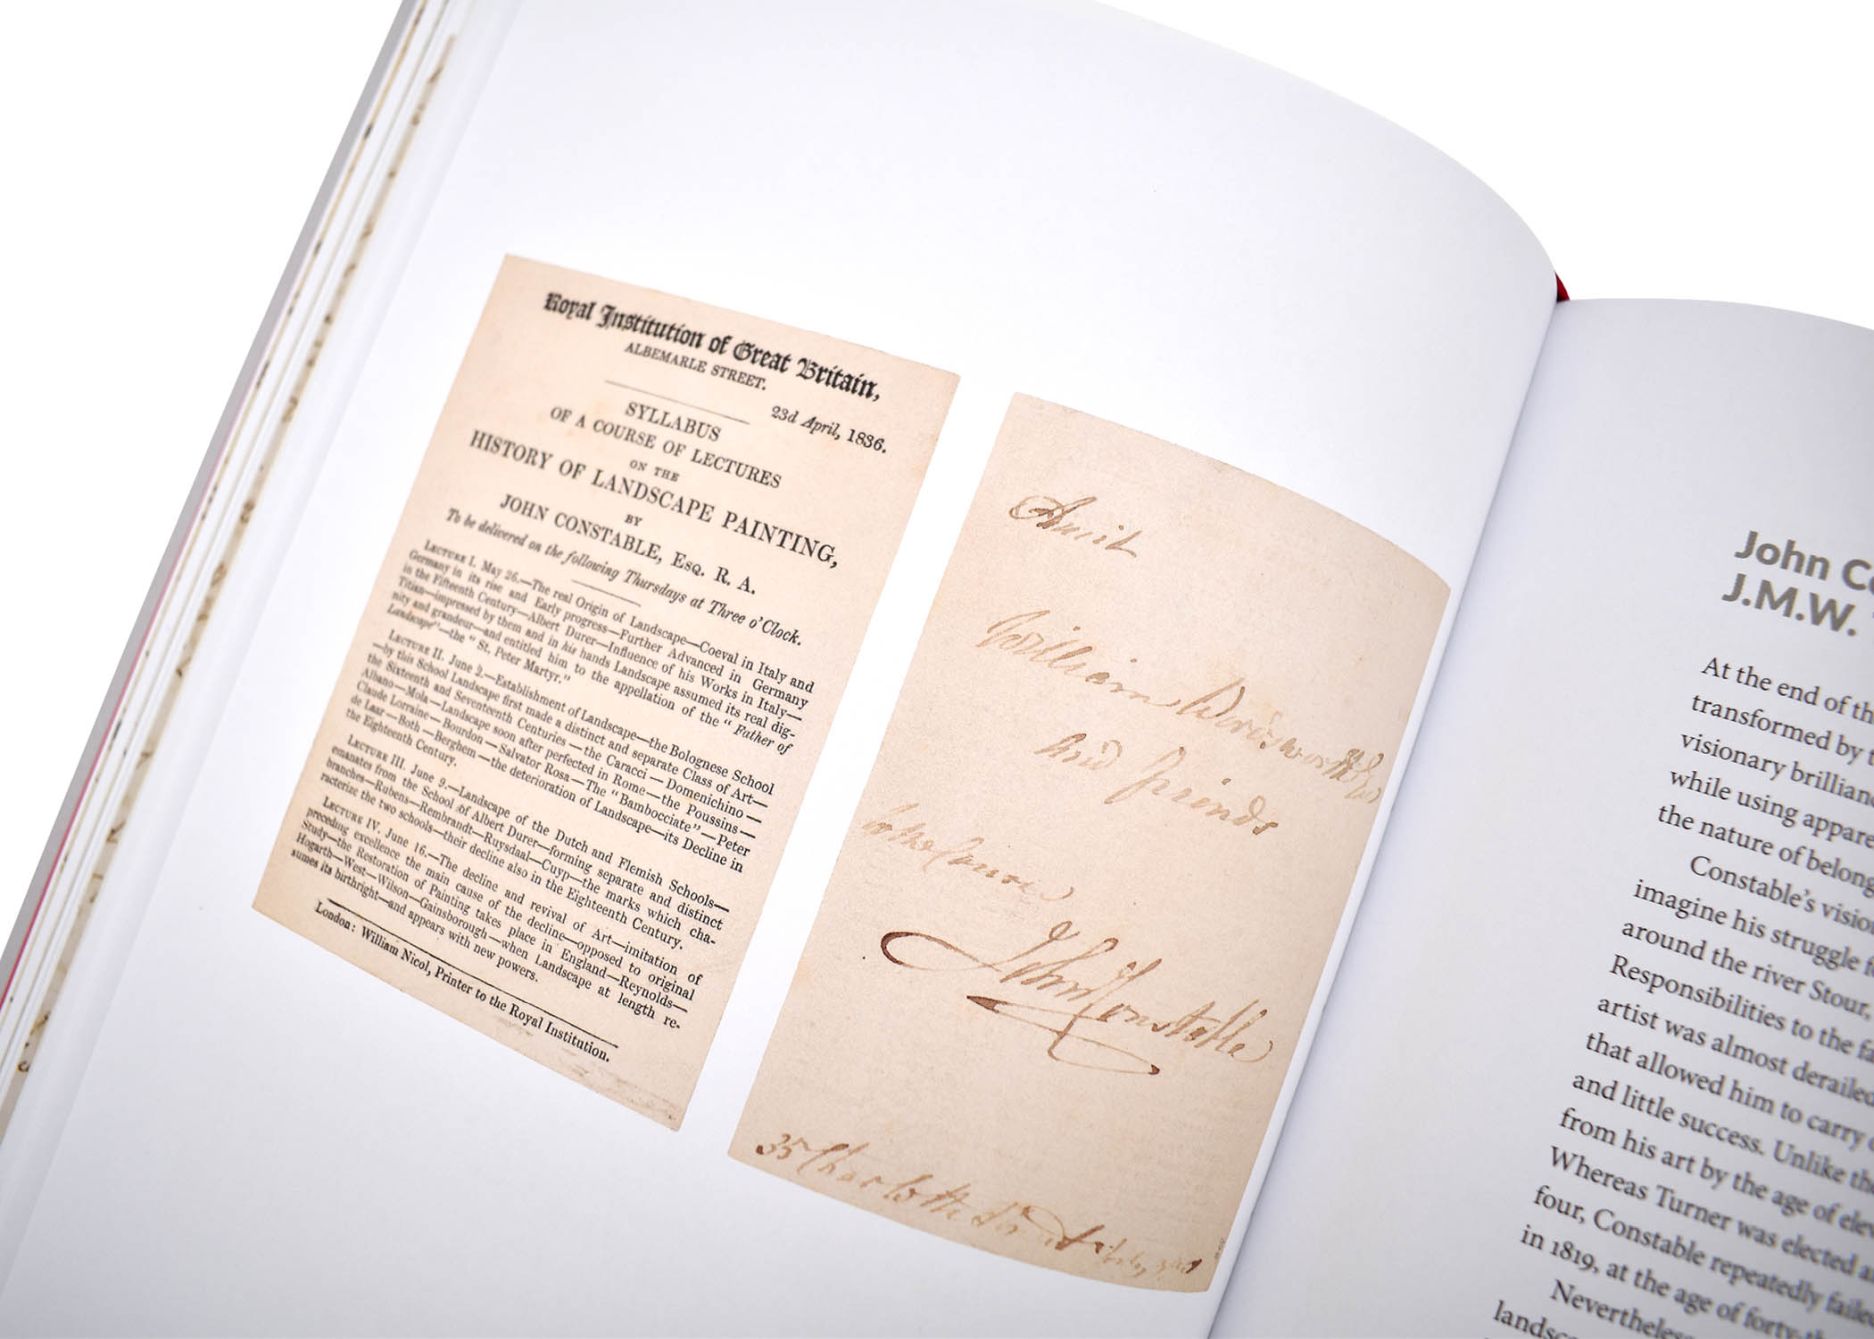 Royal Institution of Great Britain,
ALBEMARLE STREET.
23d April, 1836.
SYLLABUS
OF A COURSE OF LECTURES
ON THE
HISTORY OF LANDSCAPE PAINTING,
BY
JOHN CONSTABLE, ESQ. R. A.
To be delivered on the following Thursdays at Three o'Clock.
LECTURE I. May 26.—The real Origin of Landscape—Coeval in Italy and
Germany in its rise and Early progress—Further Advanced in Germany
in the Fifteenth Century—Albert Durer—Influence of his Works in Italy—
Titian—impressed by them and in his hands Landscape assumed its real dig-
nity and grandeur—and entitled him to the appellation of the "Father of
Landscape"—the "St. Peter Martyr."
LECTURE II. June 2.—Establishment of Landscape—the Bolognese School
—by this School Landscape first made a distinct and separate Class of Art—
the Sixteenth and Seventeenth Centuries—the Caracci—Domenichino—
Albano—Mola—Landscape soon after perfected in Rome—the Poussins—
Claude Lorraine—Bourdon—Salvator Rosa—The "Bambocciate"—Peter
de Laar—Both—Berghem—the deterioration of Landscape—its Decline in
the Eighteenth Century.
LECTURE III. June 9.—Landscape of the Dutch and Flemish Schools—
emanates from the School of Albert Durer—forming separate and distinct
branches—Rubens—Rembrandt—Ruysdael—Cuyp—the marks which cha-
racterize the two schools—their decline also in the Eighteenth Century.
LECTURE IV. June 16.—The decline and revival of Art—imitation of
preceding excellence the main cause of the decline—opposed to original
Study—the Restoration of Painting takes place in England—Reynolds—
Hogarth—West—Wilson—Gainsborough—when Landscape at length re-
sumes its birthright—and appears with new powers.
London: William Nicol, Printer to the Royal Institution.
Admit
William Wordsworth
and friends
John Constable
35 Charlotte
John C
J.M.W.
At the end of th
transformed by t
visionary brillian
while using appare
the nature of belong
Constable's visio
imagine his struggle f
around the river Stour,
Responsibilities to the fa
artist was almost derailed
that allowed him to carry
and little success. Unlike the
from his art by the age of elev
Whereas Turner was elected a
four, Constable repeatedly faile
in 1819, at the age of forty
Nevertheless
landsc